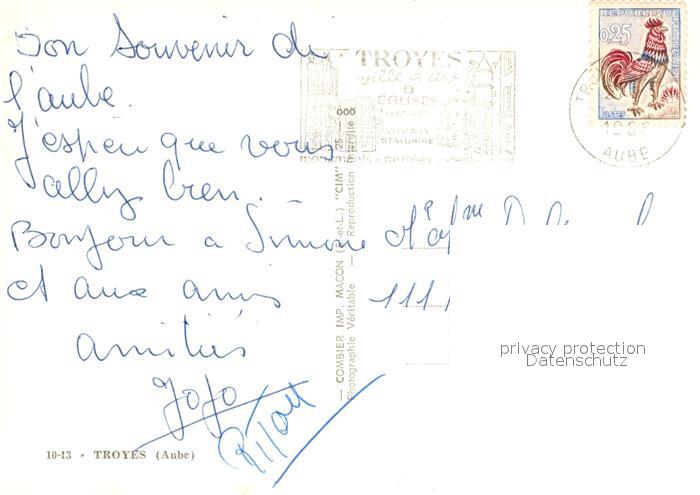 Bon Souvenir de
l'aube.
J'espère que vous
allez bien.
Bonjour a Simone
et aux amis
amitiés
Jojo
10-13 - TROYES (Aube)
— COMBIER IMP. MACON (S.-et-L.) "CIM"
Photographie Véritable — Reproduction Interdite
TROYES
ville d'art
9
ÉGLISES
VITRAUX
STATUAIRE
REPUBLIQUE FRANÇAISE
0,25
POSTES
AUBE
111,
privacy protection
Datenschutz